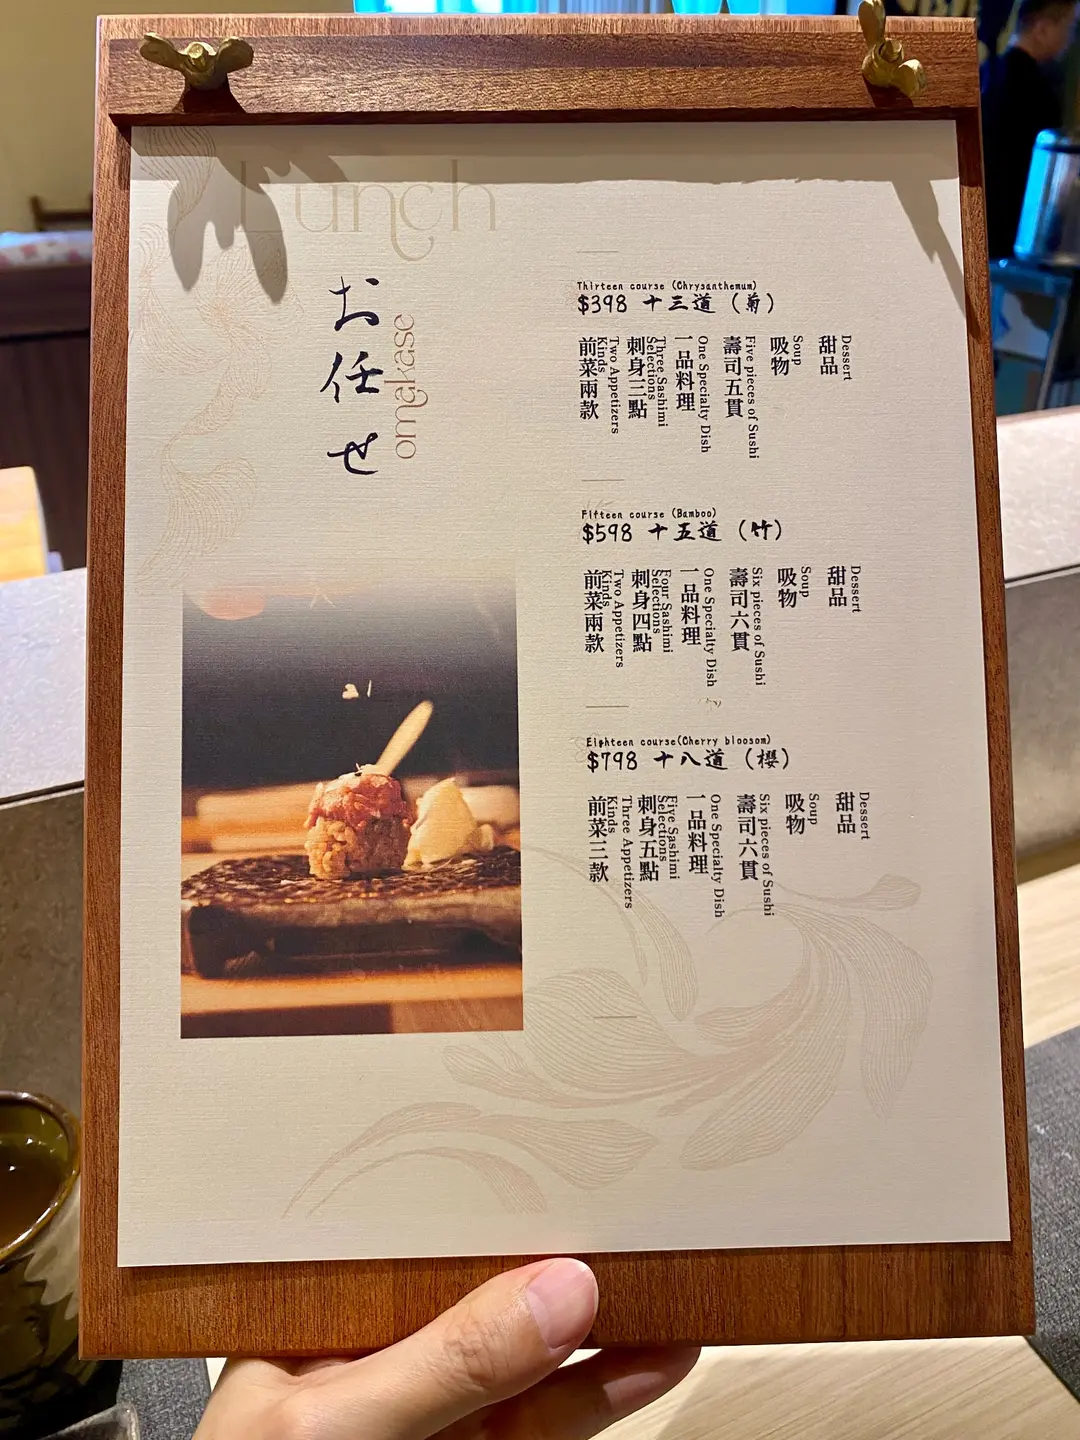 Lunch
お任せ
omakase
Thirteen course (Chrysanthemum)
$398 十三道 (菊)
前菜兩款
Two Appetizers
Kinds
刺身三點
Three Sashimi
Selections
一品料理
One Specialty Dish
壽司五貫
Five pieces of Sushi
吸物
Soup
甜品
Dessert
Fifteen course (Bamboo)
$598 十五道 (竹)
前菜兩款
Two Appetizers
Kinds
刺身四點
Four Sashimi
Selections
一品料理
One Specialty Dish
壽司六貫
Six pieces of Sushi
吸物
Soup
甜品
Dessert
Eighteen course(Cherry bloosom)
$798 十八道 (櫻)
前菜三款
Three Appetizers
Kinds
刺身五點
Five Sashimi
Selections
一品料理
One Specialty Dish
壽司六貫
Six pieces of Sushi
吸物
Soup
甜品
Dessert